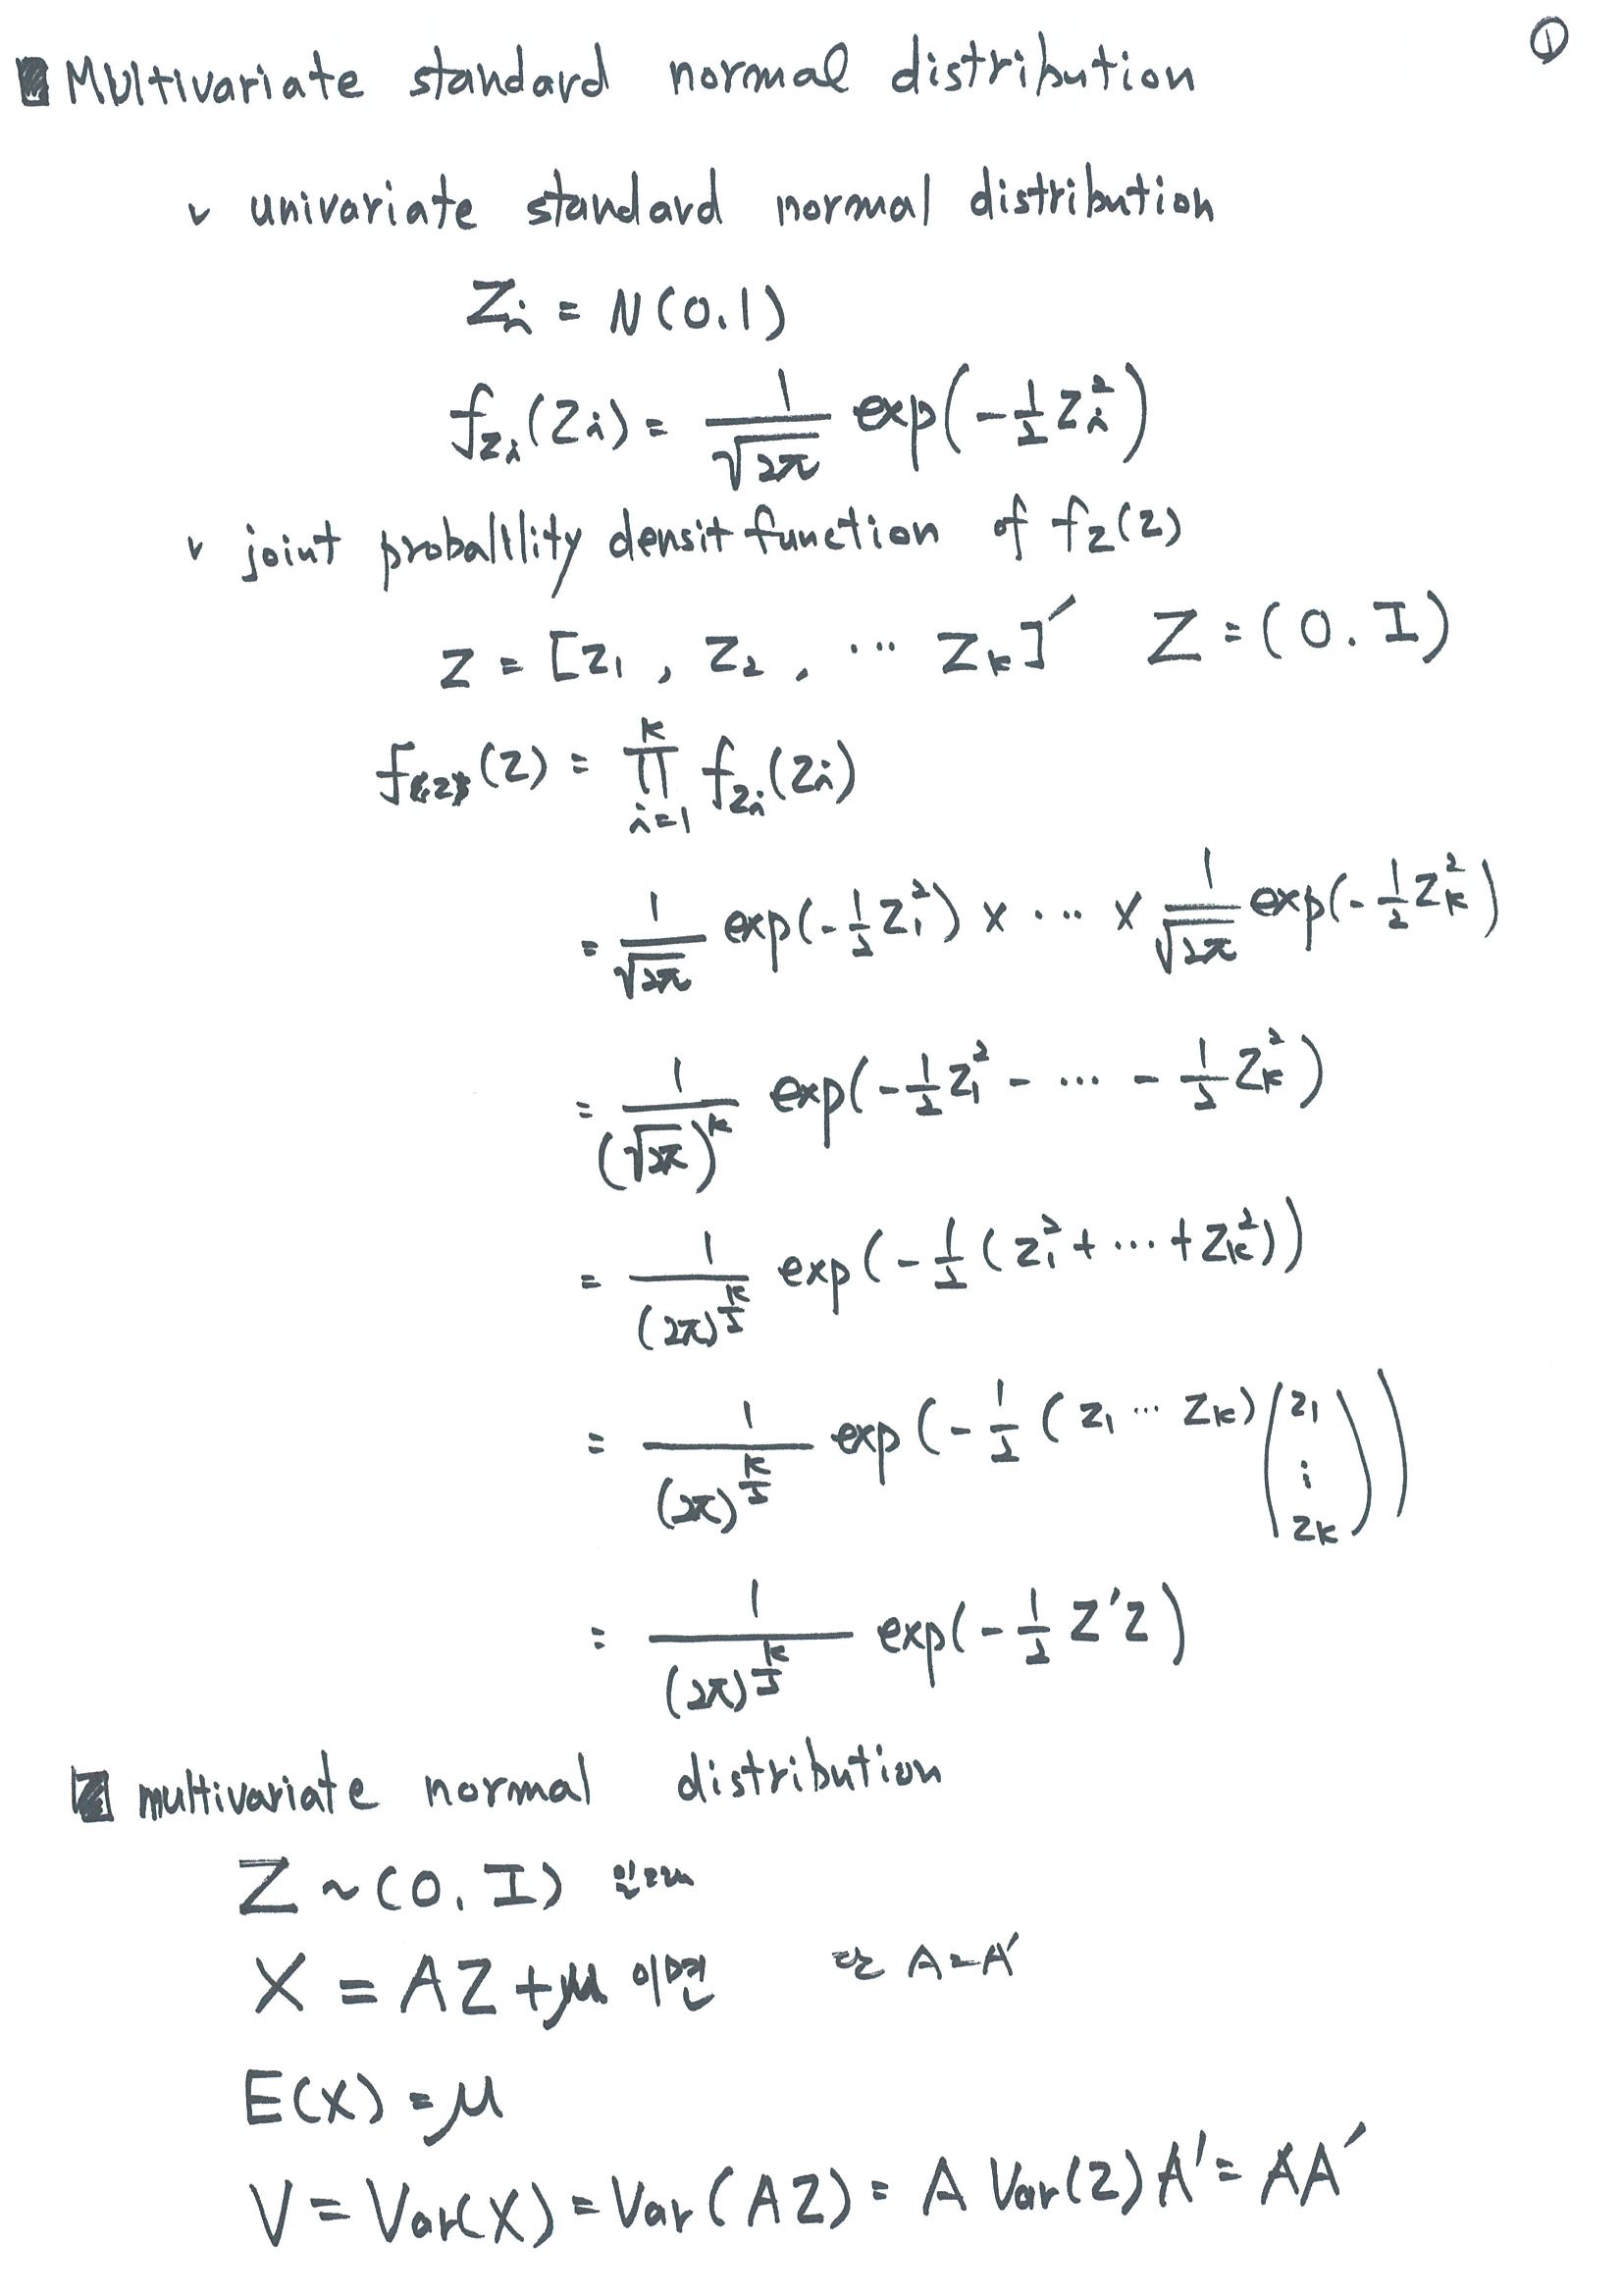 ①
Multivariate standard normal distribution
∨ univariate standard normal distribution
Zi = N(0.1)
fzi(Zi) = 1/√2π exp(-1/2 Zi²)
∨ joint probablility densit function of fz(z)
Z = [Z1, Z2, ... Zk]′ Z = (0. I)
(z) = ∏ᵏi=1 fzi(Zi)
= 1/√2π exp(-1/2 Z1²) × ... × 1/√2π exp(-1/2 Zk²)
= 1/(√2π)ᵏ exp(-1/2 Z1² - ... - 1/2 Zk²)
= 1/(2π)^(k/2) exp(-1/2 (Z1² + ... + Zk²))
= 1/(2π)^(k/2) exp(-1/2 (Z1 ... Zk)(Z1 ⋮ Zk))
= 1/(2π)^(k/2) exp(-1/2 Z′Z)
multivariate normal distribution
Z ~ (0. I)
X = AZ + μ 이면 A = A′
E(X) = μ
V = Var(X) = Var(AZ) = A Var(Z) A′ = AA′